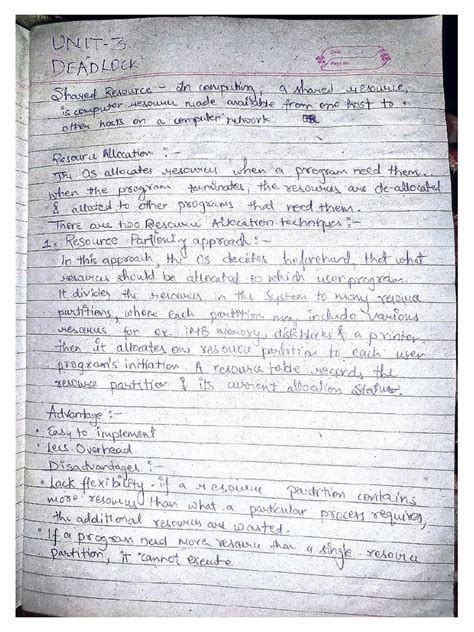 UNIT-3
DEADLOCK
Date
Page No.
Shared Resource - In computing, a shared resource,
is computer resource made available from one host to
other hosts on a computer network.
Resource Allocation :-
The OS allocates resources when a program need them.
when the program terminates, the resources are de-allocated
& allocated to other programs that need them.
There are two Resource Allocation techniques :-
1. Resource Partioning approach :-
In this approach, the OS decides beforehand, that what
resources should be allocated to which user program.
It divides the resources in the system to many resource
partitions, where each partition may include various
resources for ex. 1MB memory, disk blocks & a printer
then it allocates one resource partition to each user
program's initiation. A resource table records the
resource partition & its current allocation status.
Advantage :-
• Easy to implement
• Less Overhead
Disadvantages :-
• Lack flexibility - if a resource partition contains
more resources than what a particular process requires,
the additional resources are wasted.
• If a program need more resource than a single resource
partition, it cannot execute